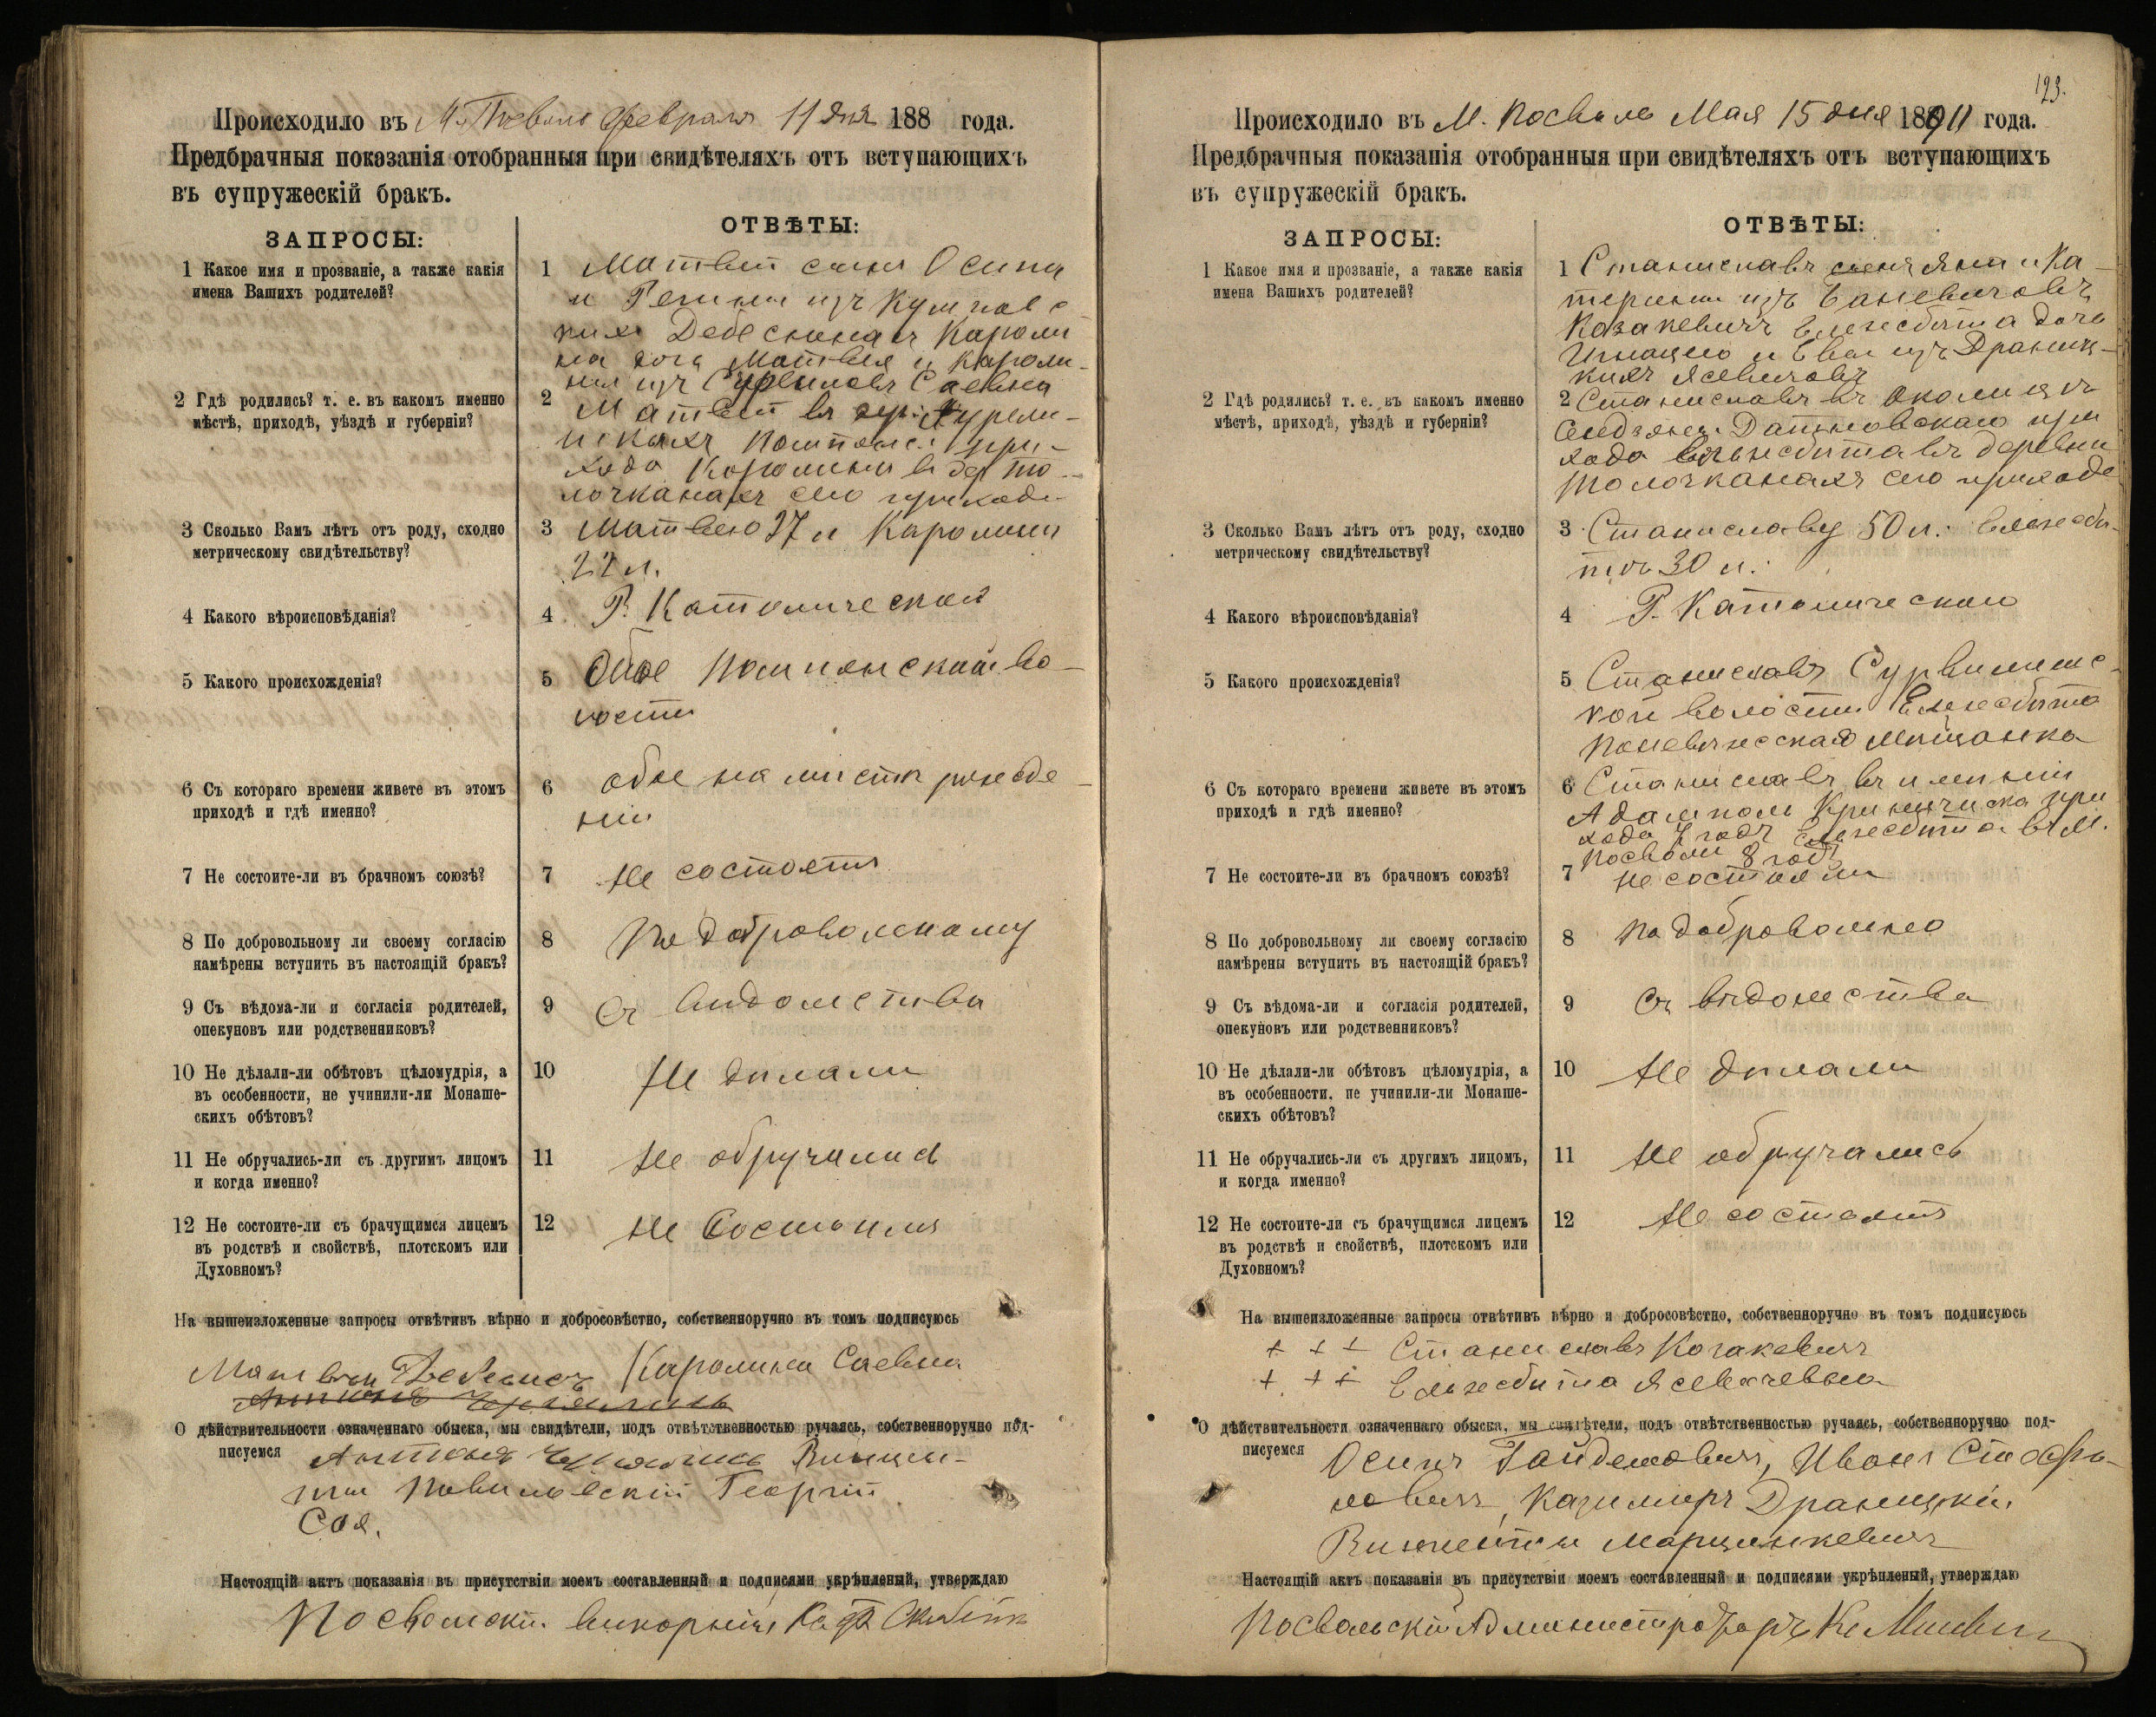 Происходило въ М. Посволь февраля 11 дня 188 года.
Предбрачныя показанія отобранныя при свидѣтеляхъ отъ вступающихъ
въ супружескій бракъ.
ЗАПРОСЫ:
ОТВѢТЫ:
1 Какое имя и прозваніе, а также какія
имена Вашихъ родителей?
1 Матвей сынъ Осипа
и Регины изъ
Кароли
на дочь Матвея и Кароли-
ны изъ
2 Гдѣ родились? т. е. въ какомъ именно
мѣстѣ, приходѣ, уѣздѣ и губерніи?
2 Матвей въ дер.
при-
хода Каролина въ дер То-
лочканахъ сего прихода
3 Сколько Вамъ лѣтъ отъ роду, сходно
метрическому свидѣтельству?
3 Матвею 37 л Каролини
22 л.
4 Какого вѣроисповѣданія?
4 Р. Католической
5 Какого происхожденія?
5 Обое Помпянской во-
лости
6 Съ котораго времени живете въ этомъ
приходѣ и гдѣ именно?
6 обое на мисти рожде-
ніи
7 Не состоите-ли въ брачномъ союзѣ?
7 Не состоятъ
8 По добровольному ли своему согласію
намѣрены вступить въ настоящій бракъ?
8 По добровольному
9 Съ вѣдома-ли и согласія родителей,
опекуновъ или родственниковъ?
9 Съ видомства
10 Не дѣлали-ли обѣтовъ цѣломудрія, а
въ особенности, не учинили-ли Монаше-
скихъ обѣтовъ?
10 Не дилали
11 Не обручались-ли съ другимъ лицомъ
и когда именно?
11 Не обручались
12 Не состоите-ли съ брачущимся лицемъ
въ родствѣ и свойствѣ, плотскомъ или
Духовномъ?
12 Не состоятъ
На вышеизложенные запросы отвѣтивъ вѣрно и добросовѣстно, собственноручно въ томъ подписуюсь
Матвей Каролина Саевна
О дѣйствительности означеннаго обыска, мы свидѣтели, подъ отвѣтственностью ручаясь, собственноручно под-
писуемся Антонъ Винцен-
тий Георгій
Соя.
Настоящій актъ показанія въ присутствіи моемъ составленный и подписями укрѣпленый, утверждаю
Посвольскій викорный
123.
Происходило въ М. Посволь Мая 15 дня 1891 года.
Предбрачныя показанія отобранныя при свидѣтеляхъ отъ вступающихъ
въ супружескій бракъ.
ЗАПРОСЫ:
ОТВѢТЫ:
1 Какое имя и прозваніе, а также какія
имена Вашихъ родителей?
1 Станиславъ сынъ Яна и Ка-
терины изъ Баневичовъ
Козакевичъ Елжебѣта дочь
Игнацего и Евы изъ Драниц-
кихъ Ясевичовъ
2 Гдѣ родились? т. е. въ какомъ именно
мѣстѣ, приходѣ, уѣздѣ и губерніи?
2 Станиславъ въ околица
Датновскаго при
хода Елжебита въ деревни
Толочканахъ сего прихода
3 Сколько Вамъ лѣтъ отъ роду, сходно
метрическому свидѣтельству?
3 Станиславу 50 л. Елжеби-
тъ 30 л.
4 Какого вѣроисповѣданія?
4 Р. Католическаго
5 Какого происхожденія?
5 Станиславъ Сурвилишс-
кой волости Елжебита
Поневежская Мищанка
6 Съ котораго времени живете въ этомъ
приходѣ и гдѣ именно?
6 Станиславъ въ имѣніи
Адамполь Криничска при
хода годъ Елжебита въ М.
Посволи 8 годъ
7 Не состоите-ли въ брачномъ союзѣ?
7 не состояли
8 По добровольному ли своему согласію
намѣрены вступить въ настоящій бракъ?
8 По добровольно
9 Съ вѣдома-ли и согласія родителей,
опекуновъ или родственниковъ?
9 Съ видомства
10 Не дѣлали-ли обѣтовъ цѣломудрія, а
въ особенности, не учинили-ли Монаше-
скихъ обѣтовъ?
10 Не дилали
11 Не обручались-ли съ другимъ лицомъ,
и когда именно?
11 Не обручались
12 Не состоите-ли съ брачущимся лицемъ
въ родствѣ и свойствѣ, плотскомъ или
Духовномъ?
12 Не состоятъ
На вышеизложенные запросы отвѣтивъ вѣрно и добросовѣстно, собственноручно въ томъ подписуюсь
+ + + Станиславъ Козакевичъ
+ + + Елжебита Ясевичевна
О дѣйствительности означеннаго обыска, мы свидѣтели, подъ отвѣтственностью ручаясь, собственноручно под-
писуемся Осипъ Гайдемовичъ, Иванъ Стефа-
новичъ, Казимиръ Драницкій.
Винцентій Марцинкевичъ
Настоящій актъ показанія въ присутствіи моемъ составленный и подписями укрѣпленый, утверждаю
Посвольскій Администраторъ Кс